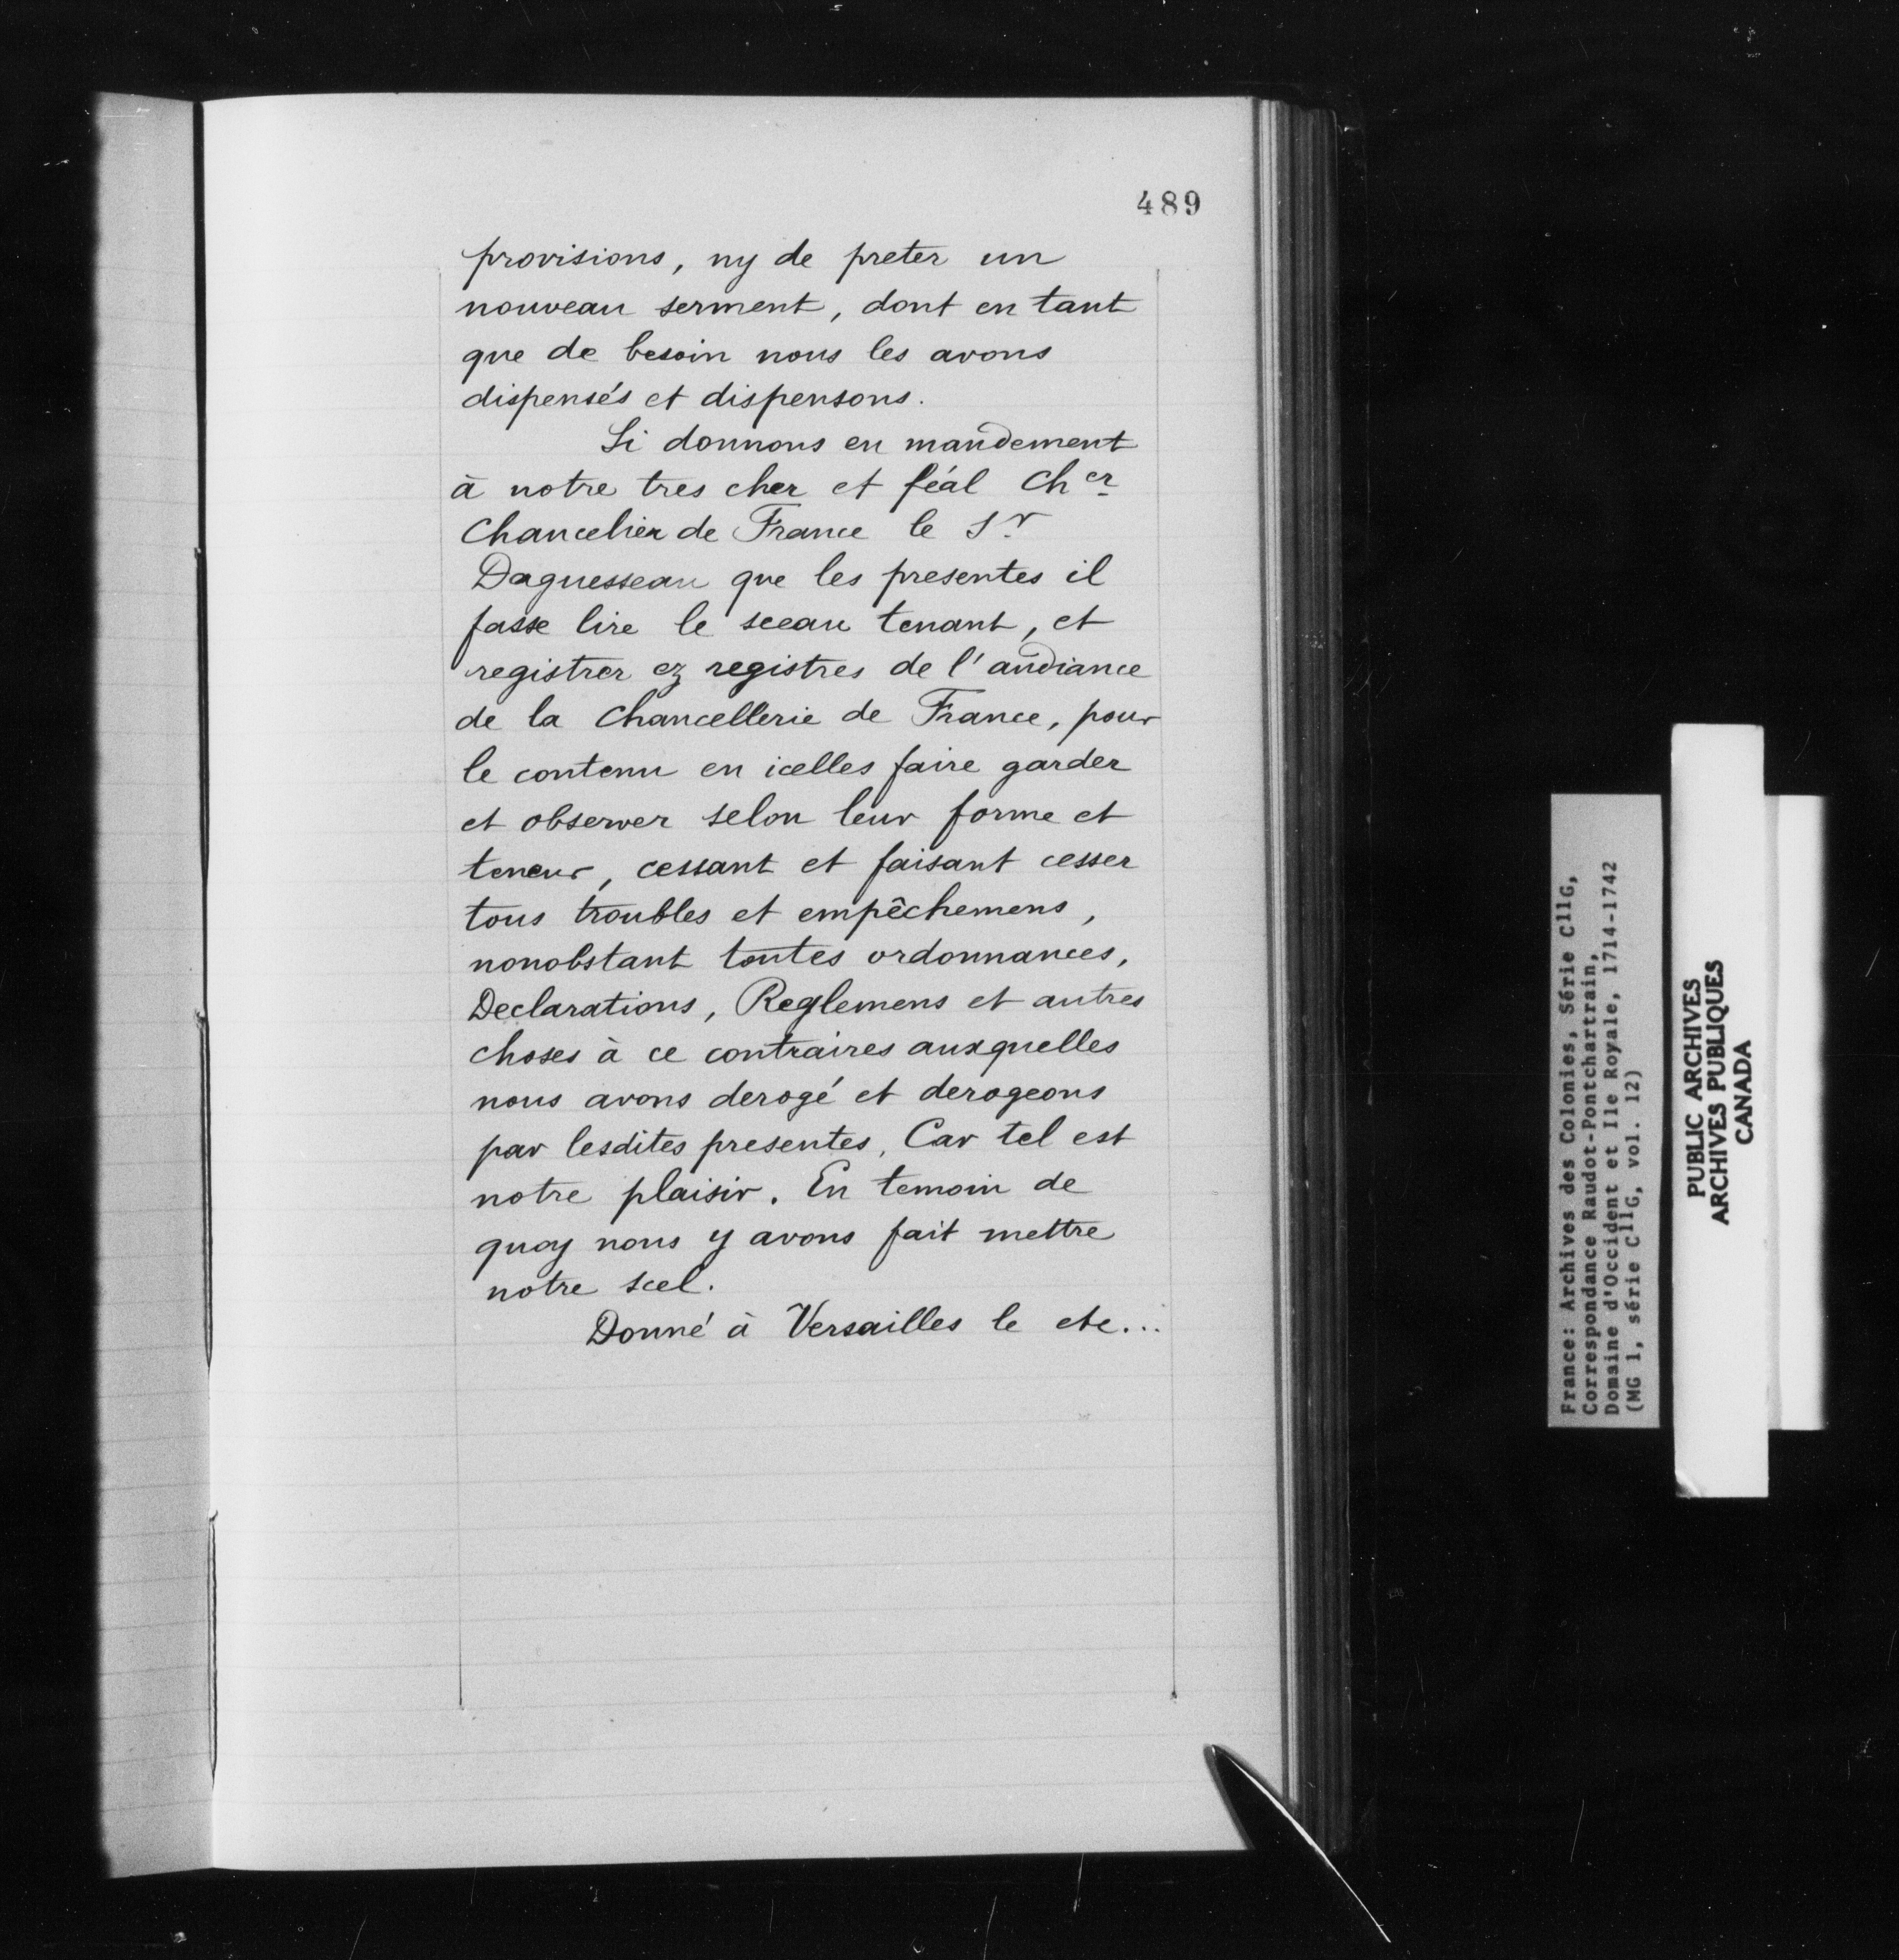 489
provisions, ny de preter un
nouveau serment, dont en tant
que de besoin nous les avons
dispensés et dispensons.
Si donnons en mandement
à notre tres cher et féal Ch er
Chancelier de France le S r
Daguesseau que les presentes il
fasse lire le sceau tenant, et
registrer ez registres de l'audiance
de la Chancellerie de France, pour
le contenu en icelles faire garder
et observer selon leur forme et
teneur, cessant et faisant cesser
tous troubles et empêchemens,
nonobstant toutes ordonnances,
Declarations, Reglemens et autres
choses à ce contraires auxquelles
nous avons derogé et derogeons
par lesdites presentes, Car tel est
notre plaisir. En temoin de
quoy nous y avons fait mettre
notre scel.
Donné à Versailles le etc...
France: Archives des Colonies, Série C11G,
Correspondance Raudot-Pontchartrain,
Domaine d'Occident et Ile Royale, 1714-1742
(MG 1, série C11G, vol. 12)
PUBLIC ARCHIVES
ARCHIVES PUBLIQUES
CANADA